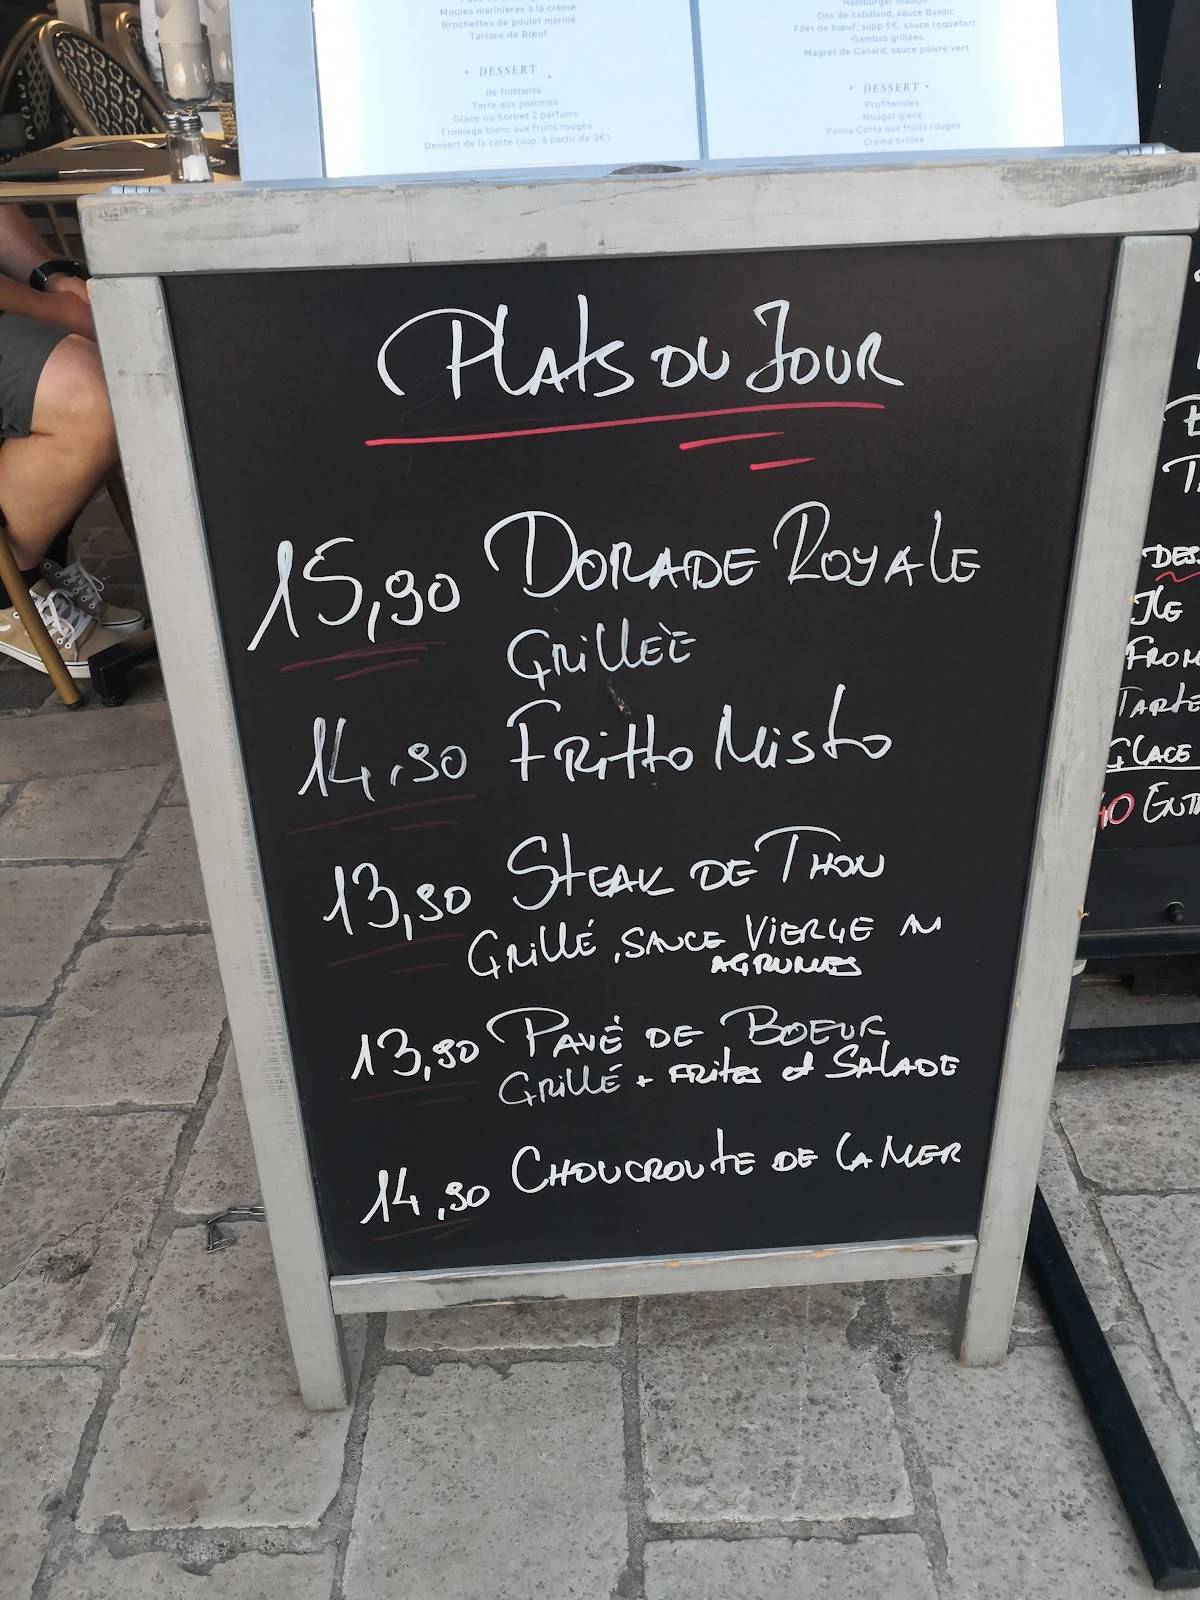 Moules marinières à la crème
Brochettes de poulet mariné
Tartare de Bœuf
• DESSERT •
Ile flottante
Tarte aux pommes
Glace ou Sorbet 2 parfums
Fromage blanc aux fruits rouges
Dessert de la carte (sup. à partir de 3€)
Hamburger maison
Dos de cabillaud, sauce Basilic
Filet de bœuf, supp 5€, sauce roquefort
Gambas grillées
Magret de Canard, sauce poivre vert
• DESSERT •
Profiteroles
Nougat glacé
Panna Cotta aux fruits rouges
Crème brûlée
PLATS DU JOUR
15,90 DORADE ROYALE
GRILLÈE
14,90 FRITTO MISTO
13,90 STEAK DE THON
GRILLÉ, SAUCE VIERGE AU
AGRUMES
13,90 PAVÉ DE BOEUF
GRILLÉ + FRITES et SALADE
14,90 CHOUCROUTE DE LA MER
DES
ILE
FROM
TARTE
GLACE
ENT